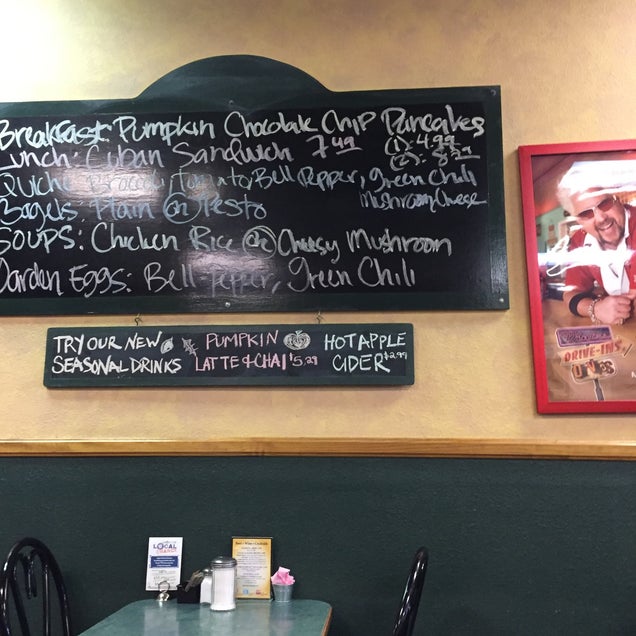 Breakfast: Pumpkin Chocolate Chip Pancakes
(1): 4.99
Lunch: Cuban Sandwich 7.49
(2): 8.29
Quiche Broccoli, Tomato/Bell Pepper, green Chili
Mushroom Cheese
Bagels Plain @ Pesto
SOUPS: Chicken Rice @ Cheesy Mushroom
Garden Eggs: Bell-Pepper, Green Chili
TRY OUR NEW
SEASONAL DRINKS
PUMPKIN
LATTE & CHAI $5.29
HOT APPLE
CIDER $2.99
DRIVE-INS
DIVES
LOCAL